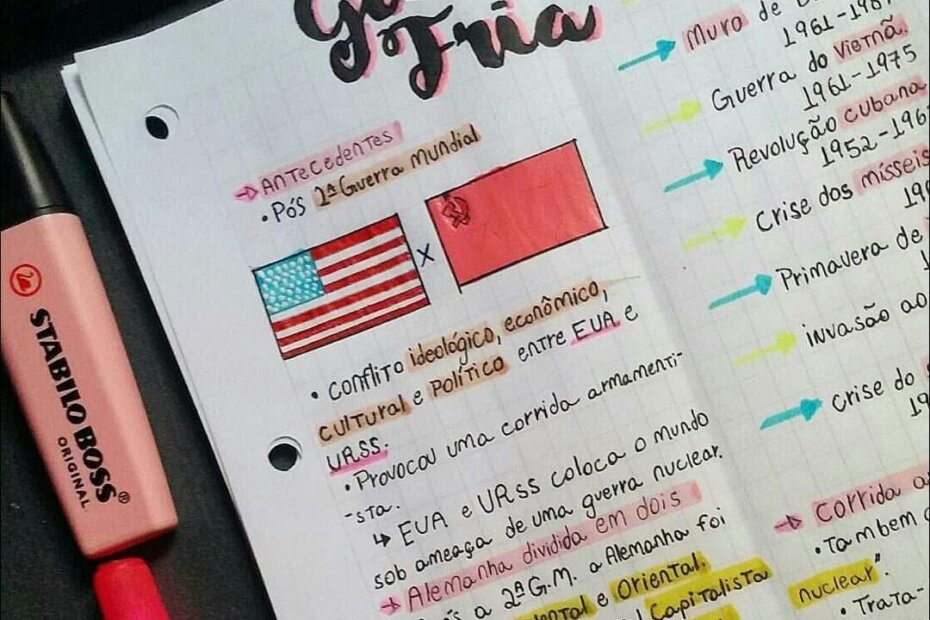 Fria
→ Antecedentes
• Pós 2ª Guerra Mundial
X
• conflito ideológico, econômico,
cultural e político entre EUA e
URSS.
• Provocou uma corrida armamenti-
-sta.
↳ EUA e URSS coloca o mundo
sob ameaça de uma guerra nuclear.
→ Alemanha dividida em dois
a 2ª G.M. a Alemanha foi
e Oriental.
Capitalista
→ Muro de
1961-
→ Guerra do Vietnã.
1961-1975
→ Revolução cubana
1952-196
→ Crise dos mísseis
→ Primavera de
→ invasão ao
→ crise do
→ Corrida
• Também
nuclear".
• Trata-
STABILO BOSS®
ORIGINAL